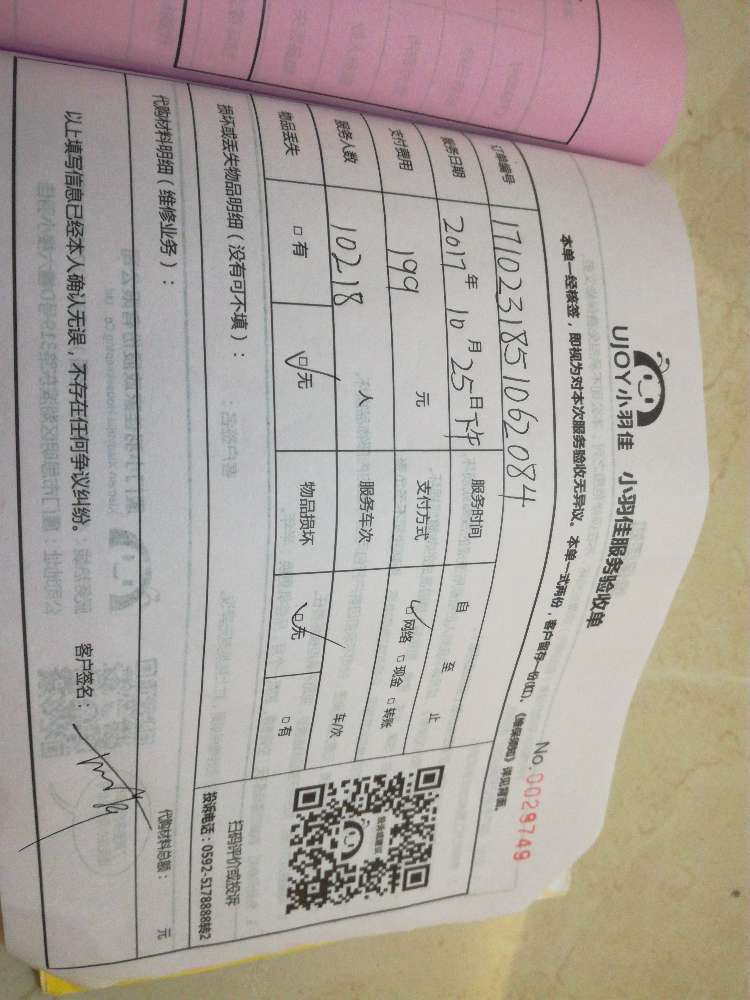 UJOY小羽佳 小羽佳服务验收单
No.0029749
本单一经核签，即视为对本次服务验收无异议。本单一式两份，客户留存一份(红)，《维保须知》详见背面。
订单编号 171023185106 2084
服务日期 2017年 10月 25日下午 服务时间 自 至 止
支付费用 199 元 支付方式 ☑网络 □现金 □转账
服务人数 10218 人 服务车次 车/次
物品丢失 □有 ☑无 物品损坏 ☑无 □有
损坏或丢失物品明细（没有可不填）：
扫码评价或投诉
投诉电话：0592-5178888转2
代购材料明细（维修业务）：
代购材料总额： 元
以上填写信息已经本人确认无误，不存在任何争议纠纷。 客户签名：